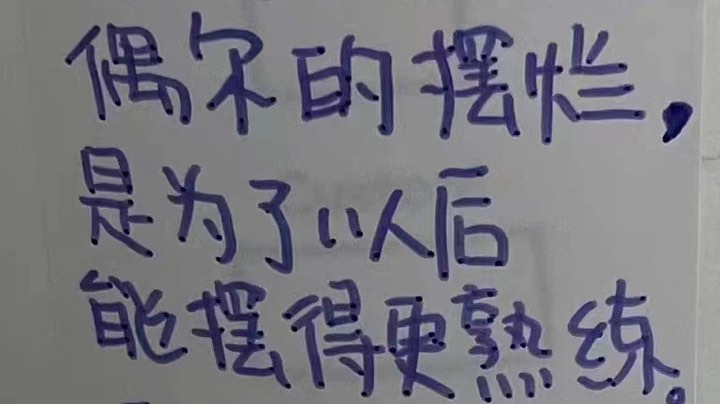 偶尔的摆烂，
是为了以后
能摆得更熟练。